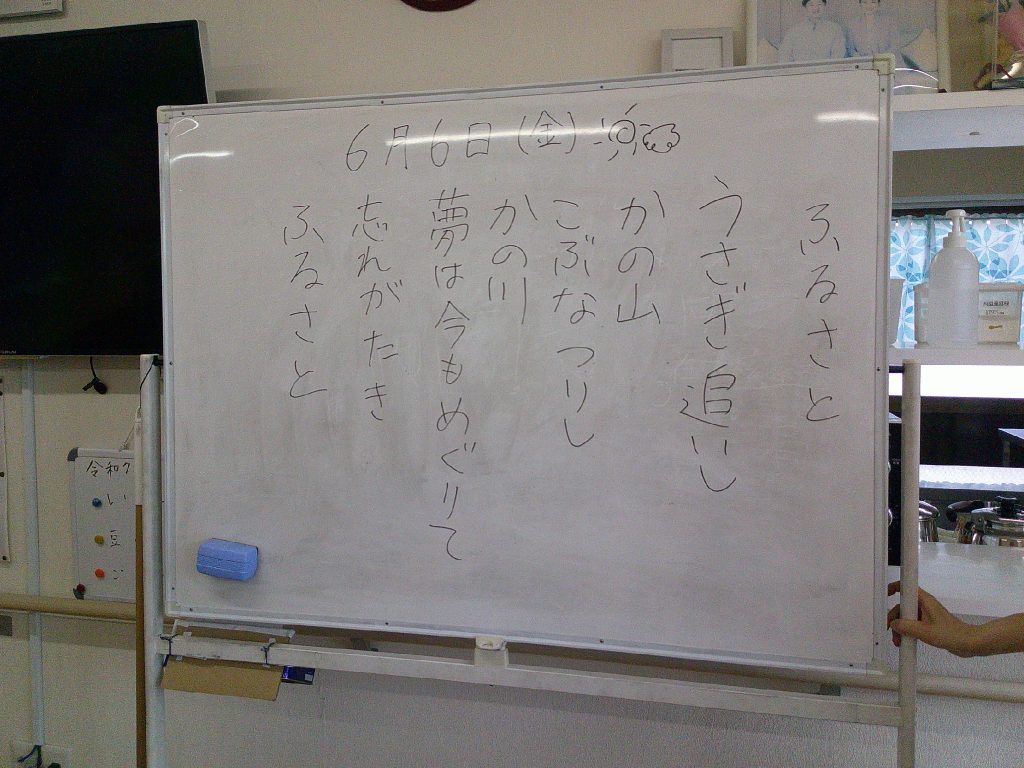 6月6日(金)
ふるさと
うさぎ追いし
かの山
こぶなつりし
かの川
夢は今もめぐりて
忘れがたき
ふるさと
令和7
い
豆